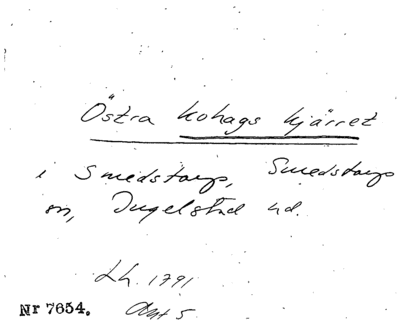 Östra kohags kjärret
i Smedstorps, Smedstorps
sn, Ingelstad hd.
Lh. 1791
Nr 7654. Akt 5